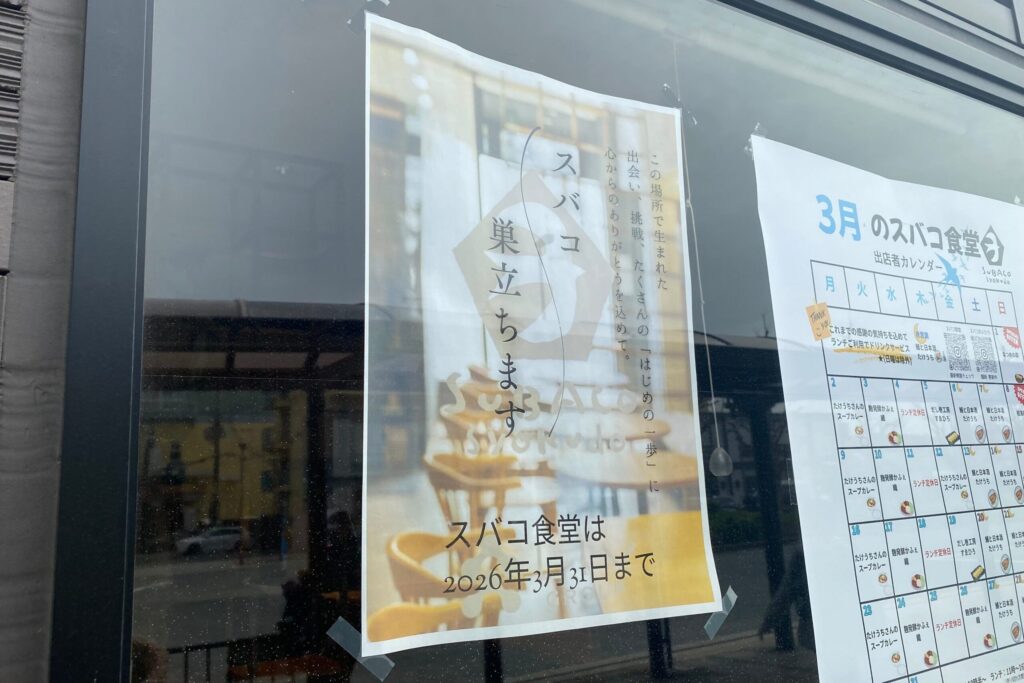 スバコ
巣立ちます
この場所で生まれた
出会い、挑戦、たくさんの「はじめの一歩」に
心からのありがとうを込めて。
スバコ食堂は
2026年3月31日まで
3月のスバコ食堂
SUBACO
出店者カレンダー
月 火 水 木 金 土 日
THANK
これまでの感謝の気持ちを込めて
ランチご利用でドリンクサービス
★(日曜は除外)
麺と日本酒
たけうち
2 3 4 5 6 7
たけうちさんの
スープカレー
麹発酵かふぇ
結
ランチ定休日
だし巻工房
すまひち
麺と日本酒
たけうち
9 10 11 12 13 14
たけうちさんの
スープカレー
麹発酵かふぇ
結
ランチ定休日
たけうちさんの
スープカレー
麺と日本酒
たけうち
16 17 18 19 20 21
たけうちさんの
スープカレー
麹発酵かふぇ
結
ランチ定休日
麺と日本酒
たけうち
23 24 25 26 27
たけうちさんの
スープカレー
麹発酵かふぇ
結
ランチ定休日
麺と日本酒
たけうち
31
ランチ:11時～